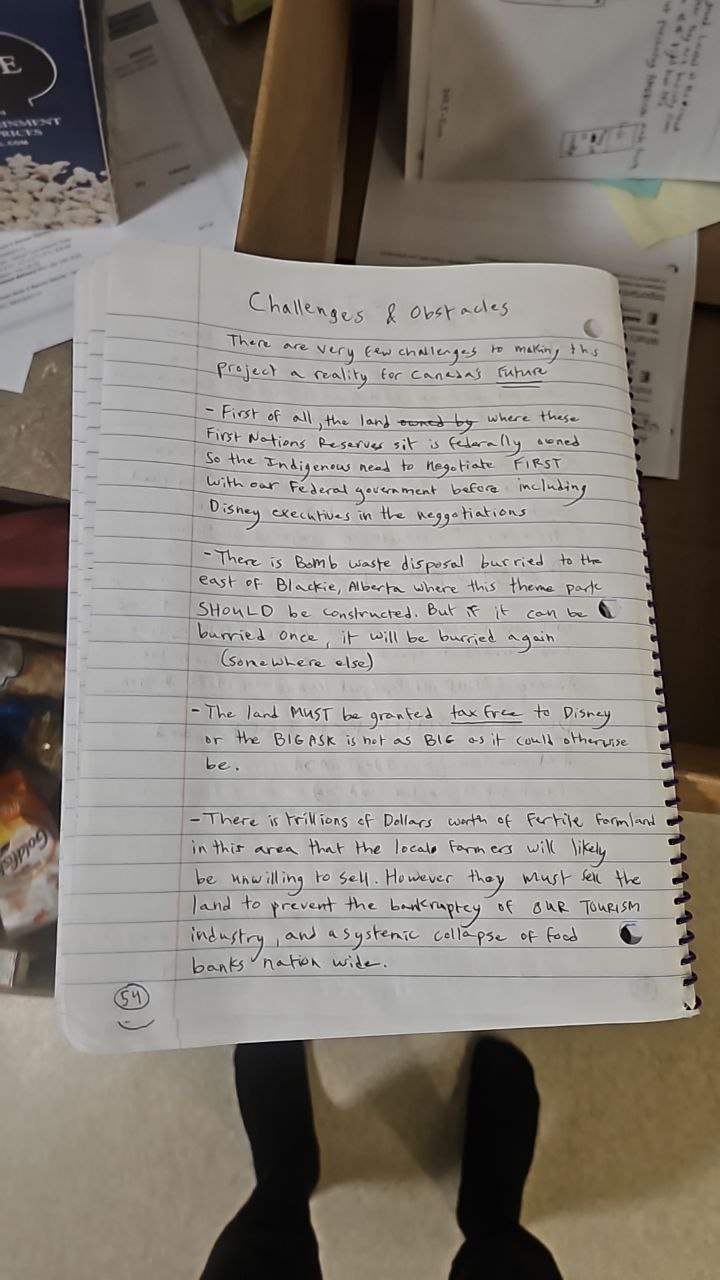 E
RICES
.COM
Challenges & Obstacles
There are very few challenges to making this
project a reality for Canadas Future
- First of all, the land owned by where these
First Nations Reserves sit is federally owned
So the Indigenous need to Negotiate FIRST
with our Federal government before including
Disney executives in the neggotiations
- There is Bomb waste disposal burried to the
east of Blackie, Alberta where this theme park
SHOULD be constructed. But if it can be
burried once, it will be burried again
(somewhere else)
- The land MUST be granted tax free to Disney
or the BIG ASK is not as BIG as it could otherwise
be.
- There is trillions of Dollars worth of Fertile farmland
in this area that the locals farmers will likely
be unwilling to sell. However they must sell the
land to prevent the bankruptcy of OUR TOURISM
industry, and a systemic collapse of food
banks nation wide.
54
Goldfish